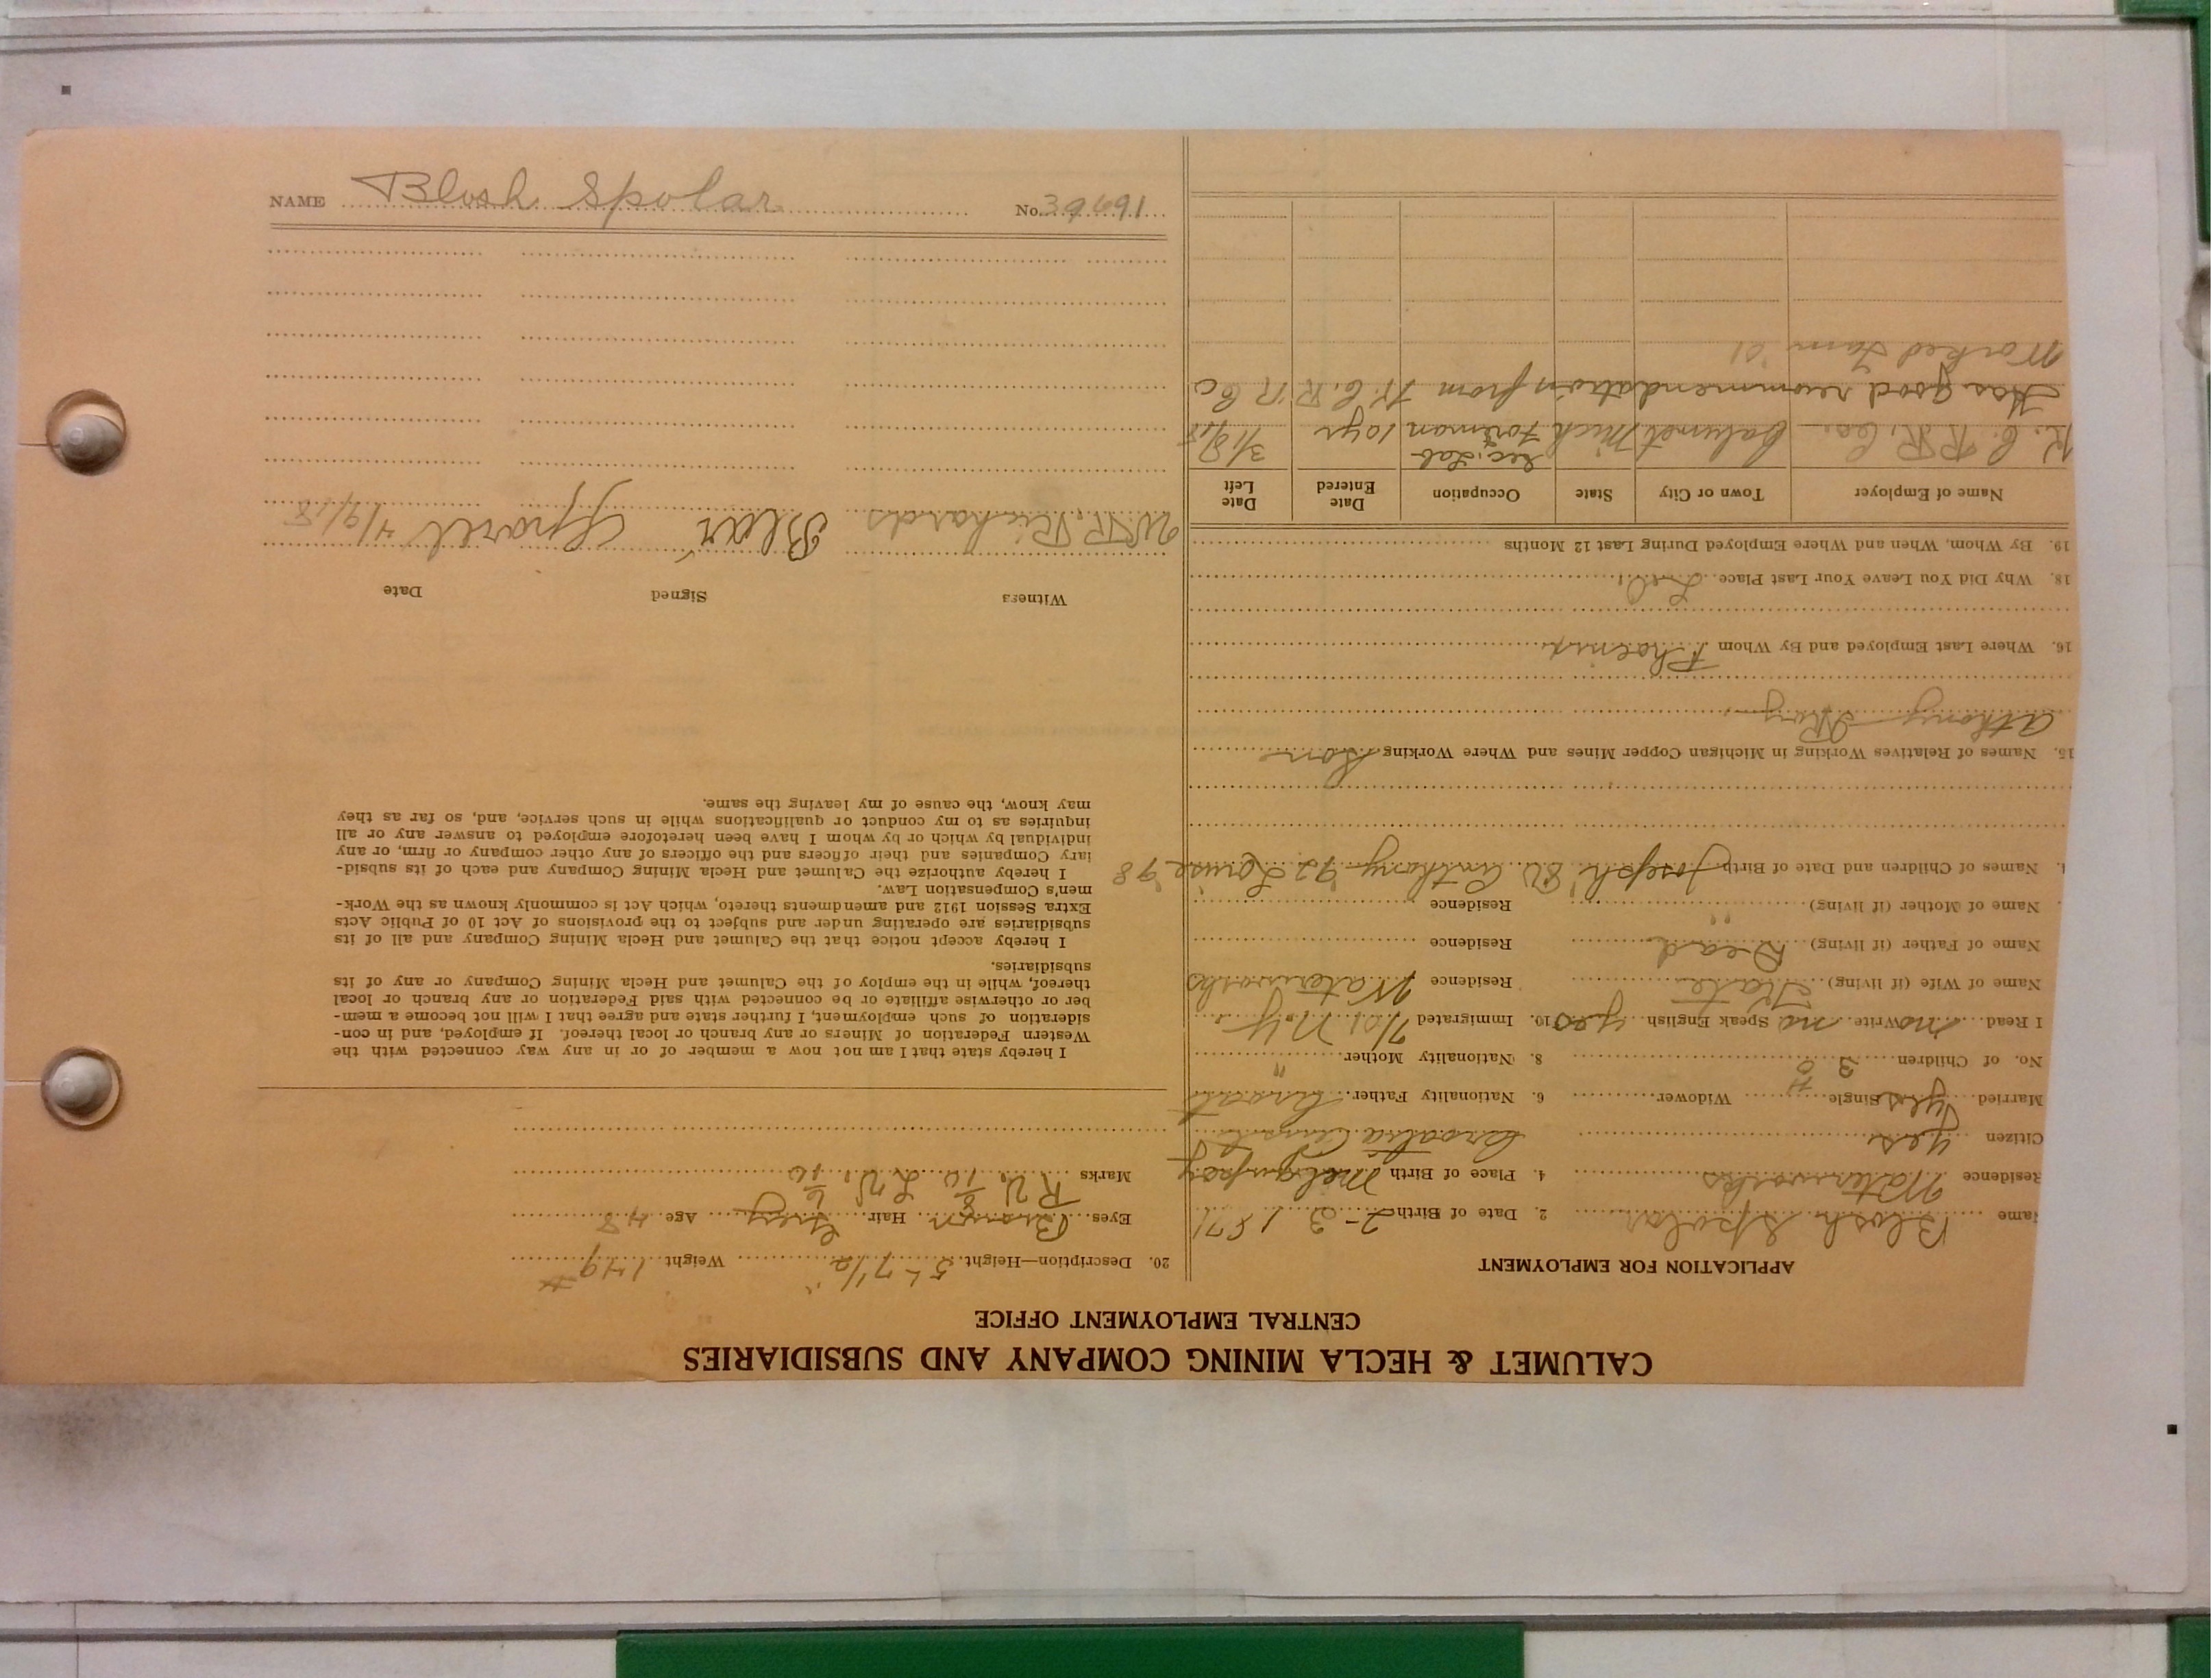 NAME Blosh Spolar No. 39691
CALUMET & HECLA MINING COMPANY AND SUBSIDIARIES
CENTRAL EMPLOYMENT OFFICE
APPLICATION FOR EMPLOYMENT
Name Blosh Spolar 2. Date of Birth 2-3 1871
Residence Waterworks 4. Place of Birth
Citizen yes Croatia
Married yes Single Widower 6. Nationality Father Croat
No. of Children 3 8. Nationality Mother "
I Read no Write no Speak English yes 10. Immigrated 7/01 N.Y.
Name of Wife (if living) Kate Residence Waterworks
Name of Father (if living) Dead Residence
Name of Mother (if living) " Residence
Names of Children and Date of Birth Joseph Anthony '92 Louise '98
15. Names of Relatives Working in Michigan Copper Mines and Where Working Son
Athony
16. Where Last Employed and By Whom Phoenix
18. Why Did You Leave Your Last Place
19. By Whom, When and Where Employed During Last 12 Months
Name of Employer Town or City State Occupation Date Entered Date Left
Sec. Lab
K. C. R.R. Co. Calumet Mich Foreman 10 yr 3/18/18
Has good recommendation from K. C. R R Co
Worked Tam '01
20. Description—Height 5' 7 1/2" Weight 149 #
Eyes Brown Hair Grey Age 48
Marks R.V. 8/10 L.V. 6/10
I hereby state that I am not now a member of or in any way connected with the
Western Federation of Miners or any branch or local thereof. If employed, and in con-
sideration of such employment, I further state and agree that I will not become a mem-
ber or otherwise affiliate or be connected with said Federation or any branch or local
thereof, while in the employ of the Calumet and Hecla Mining Company or any of its
subsidiaries.
I hereby accept notice that the Calumet and Hecla Mining Company and all of its
subsidiaries are operating under and subject to the provisions of Act 10 of Public Acts
Extra Session 1912 and amendments thereto, which Act is commonly known as the Work-
men's Compensation Law.
I hereby authorize the Calumet and Hecla Mining Company and each of its subsid-
iary Companies and their officers and the officers of any other company or firm, or any
individual by which or by whom I have been heretofore employed to answer any or all
inquiries as to my conduct or qualifications while in such service, and, so far as they
may know, the cause of my leaving the same.
Witness Signed Date
Richards 4/9/18